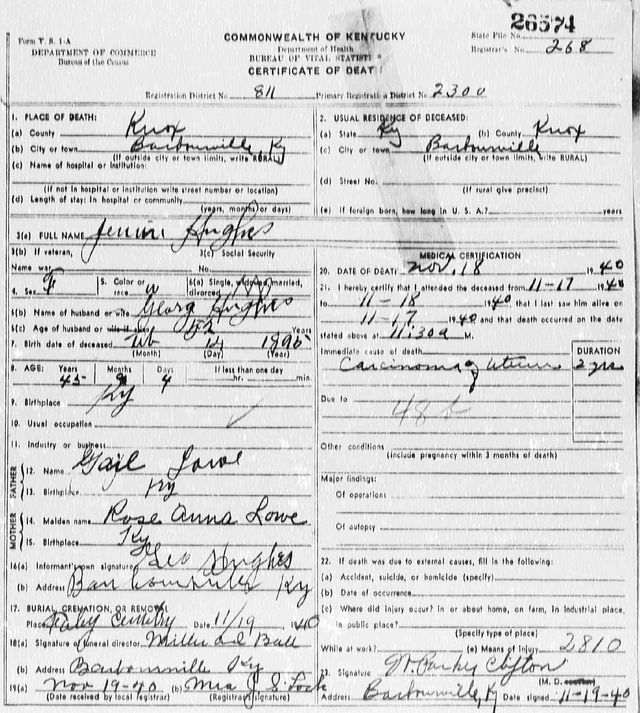 26574
Form V. S. 1-A
DEPARTMENT OF COMMERCE
Bureau of the Census
COMMONWEALTH OF KENTUCKY
Department of Health
BUREAU OF VITAL STATISTI
CERTIFICATE OF DEAT
State File No.
Registrar's No. 268
Registration District No. 811 Primary Registration District No. 2300
1. PLACE OF DEATH:
(a) County Knox
(b) City or town Barbourville, Ky
(If outside city or town limits, write RURAL)
(c) Name of hospital or institution:
(If not in hospital or institution write street number or location)
(d) Length of stay: In hospital or community
(years, months or days)
2. USUAL RESIDENCE OF DECEASED:
(a) State Ky (b) County Knox
(c) City or town Barbourville
(If outside city or town limits, write RURAL)
(d) Street No.
(If rural give precinct)
(e) If foreign born, how long in U. S. A.? years
3(a) FULL NAME Hughes
3(b) If veteran, 3(c) Social Security
Name war No.
4. Sex F 5. Color or race W 6(a) Single, widowed, married, divorced
6(b) Name of husband or wife Georg Hughes
6(c) Age of husband or wife if alive 52 Years
7. Birth date of deceased Feb 14 1895
(Month) (Day) (Year)
8. AGE: Years Months Days If less than one day
45 9 4 hr. min.
9. Birthplace Ky
10. Usual occupation
11. Industry or business
FATHER
12. Name Gail Lowe
13. Birthplace Ky
MOTHER
14. Maiden name Rose Anna Lowe
15. Birthplace Ky
16(a) Informant's own signature Geo Hughes
(b) Address Barbourville Ky
17. BURIAL, CREMATION, OR REMOVAL
Place Date 11/19 1940
18(a) Signature of funeral director Miller
(b) Address Barbourville Ky
19(a) Nov 19-40 (b) Mrs J. S. Lock
(Date received by local registrar) (Registrar's signature)
MEDICAL CERTIFICATION
20. DATE OF DEATH Nov. 18 1940
21. I hereby certify that I attended the deceased from 11-17 1940
to 11-18 1940 that I last saw him alive on
11-17 1940 and that death occurred on the date
stated above at 11:30a M.
Immediate cause of death DURATION
Carcinoma of uterus 2 yrs
Due to
Other conditions
(include pregnancy within 3 months of death)
Major findings:
Of operations
Of autopsy
22. If death was due to external causes, fill in the following:
(a) Accident, suicide, or homicide (specify)
(b) Date of occurrence
(c) Where did injury occur? In or about home, on farm, in industrial place,
in public place?
(Specify type of place)
While at work? (e) Means of injury 2810
23. Signature
(M. D.
Address Barbourville, Ky Date signed 11-19-40